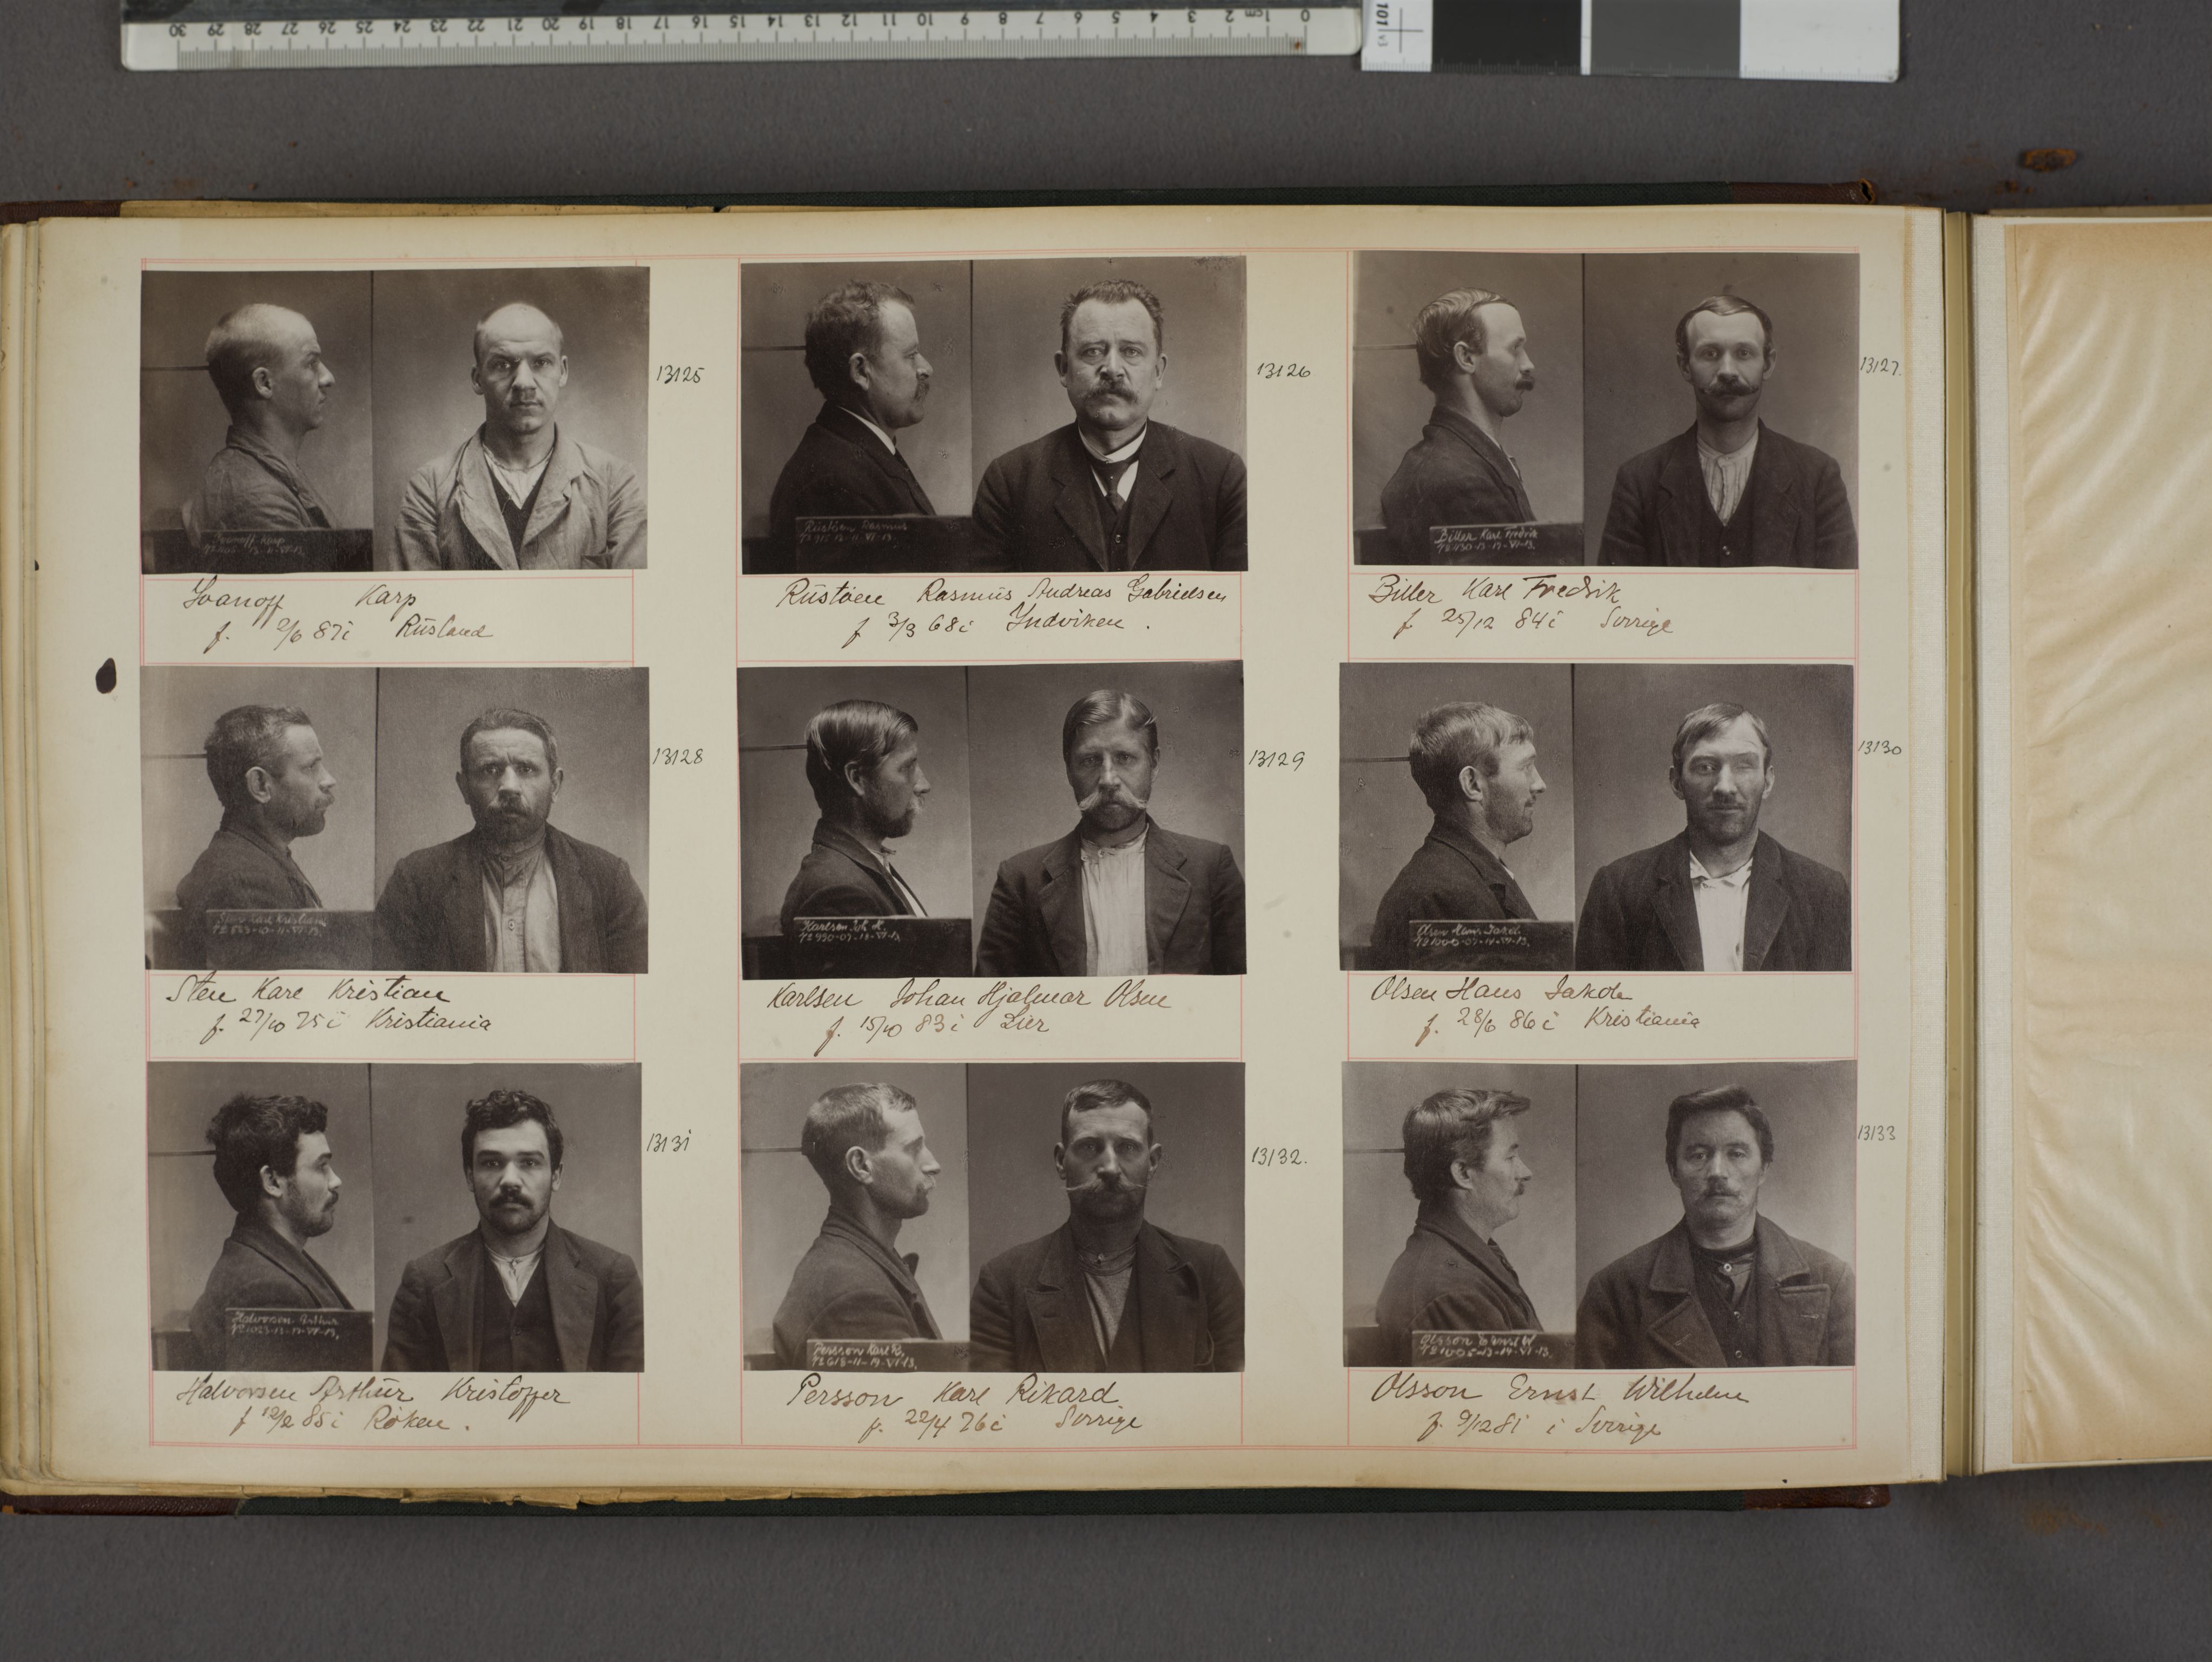 30 29 28 27 26 25 24 23 22 21 20 19 18 17 16 15 14 13 12 11 10 9 8 7 6 5 4 3 2 1cm 0
101 v3
13125
Ivanoff Karp
f. 2/6 87 i Rusland
13126
Rustøen Rasmus
Rustöen Rasmus Andreas Gabrielsen
f 3/3 68 i Indviken .
13127.
Biller Karl Fredrik
Biller Karl Fredrik
f 25/12 84 i Sverige
13128
Sten Karl Kristian
Sten Karl Kristian
f. 27/10 75 i Kristiania
13129
Karlsen Joh. H.
Karlsen Johan Hjalmar Olsen
f. 15/10 83 i Lier
13130
Olsen Hans Jakob
Olsen Hans Jakob
f. 28/6 86 i Kristiania
13131
Halvorsen Arthur
Halvorsen Arthur Kristoffer
f 12/2 85 i Röken .
13132.
Persson Karl R.
№ 618-11-19-VI-13.
Persson Karl Rikard
f. 22/4 76 i Sverige
13133
Olsson Ernst W
№ 1005-13-19-VI-13.
Olsson Ernst Wilhelm
f. 9/12 81 i Sverige